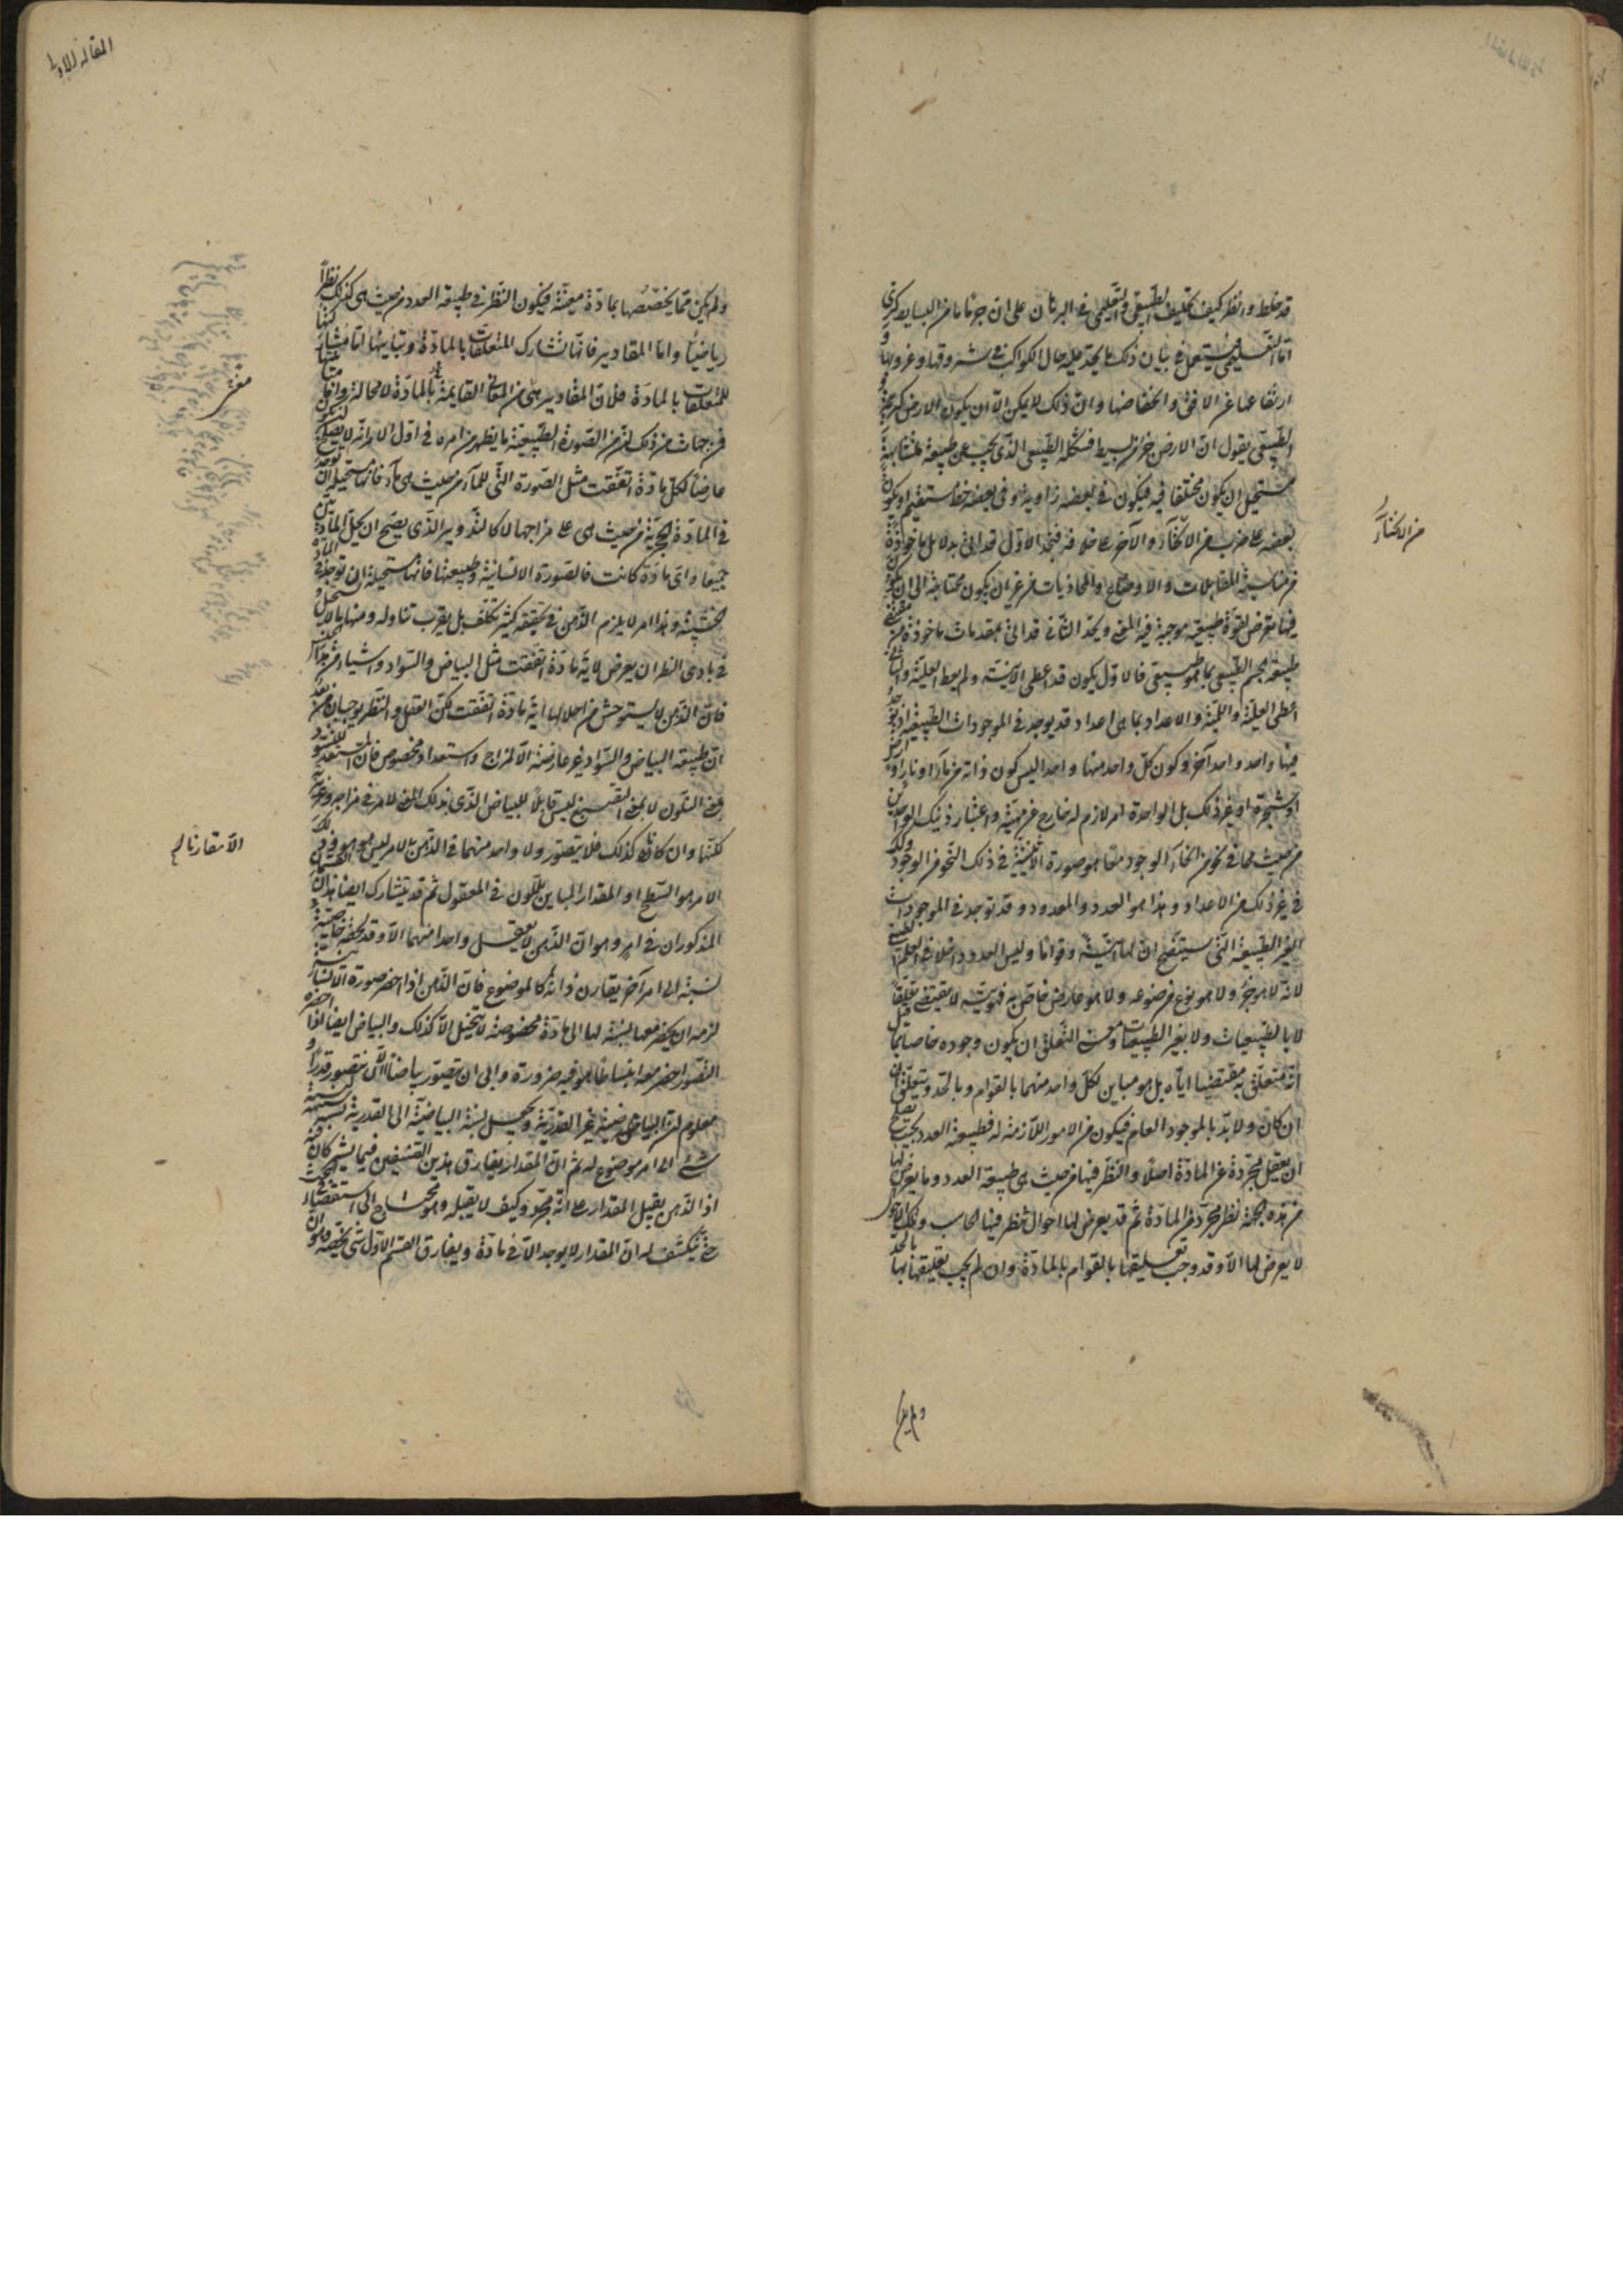 قد خلط وانظر كيف يختلف الطبيعي والتعليمي في البرهان على ان جرما ما من البسايط كري
اما التعليمي فيستعمل في بيان ذلك ما يجد عليه حال الكواكب في شروقها وغروبها و
ارتفاعها عن الافق وانخفاضها وان ذلك لا يمكن الا ان يكون الارض كرية و
الطبيعي يقول ان الارض جرم بسيط فشكله الطبيعي الذي يجب عن طبيعة متشابهة
يستحيل ان يكون مختلفا فيه فيكون في بعضه زاوية وفي بعضه خط مستقيم او يكون
بعضه على ضرب من الانحناء والآخر على خلافه فتجد الاول قد اتى بدلائل ماخوذة
من مناسبة المقابلات والاوضاع والمحاذيات من غير ان يكون محتاجة الى ان يكون
فيها تعرض لقوة طبيعية موجبة فيه المعنى وتجد الثاني قد اتى بمقدمات ماخوذة من مقتضى
طبيعة الجسم الطبيعي بما هو طبيعي فالاول يكون قد اعطى الانية ولم يعط العلية والثاني
اعطى العلية واللمية والاعداد بما هي اعداد قد يوجد في الموجودات الطبيعية اذ يوجد
فيها واحد وواحد آخر وكون كل واحد منها واحدا ليس كون ذاته من ماء او نار او ارض
او شجرة او غير ذلك بل الواحدة امر لازم له خارج عن مهيته واعتبار ذينك الواحدين
من حيث هما في نحو من انحاء الوجود معا هو صورة الاثنينية في ذلك النحو من الوجود وكذلك
في غير ذلك من الاعداد وهذا هو العدد والمعدود وقد توجد في الموجودات
الغير الطبيعية التي سيتضح ان لها انية وقواما وليس العدد داخلا في العلم الطبيعي
لانه لا هو جزء ولا هو نوع من موضوعه ولا هو عارض خاص به فهويته لا يقتضي تعلقا
لا بالطبيعيات ولا بغير الطبيعيات ومعنى التعلق ان يكون وجوده خاصا بما قيل
انه متعلق به مقتضيا اياه بل هو مباين لكل واحد منهما بالقوام وبالحد ويتعلق
ان كان ولا بد بالموجود العام فيكون من الامور اللازمة له فطبيعة العدد يجب تصلح
ان يعقل مجردة عن المادة اصلا والنظر فيها من حيث هي طبيعة العدد وما يعرض لها
من هذه الجهة نظر مجرد عن المادة ثم قد يعرض لها احوال ينظر فيها الحاسب وتلك الاحوال
لا يعرض لها الا وقد وجب تعليقها بالقوام بالمادة وان لم يجب تعليقها بها بالحد
من الانحناء
ولم يكن
المقالة الاولى
ولم يكن مما يخصصها بمادة معينة فيكون النظر في طبيعة العدد من حيث هي كذلك نظرا
رياضيا واما المقادير فانها تشارك المتعلقات بالمادة وتباينها اما مشاركتها
للمتعلقات بالمادة فلان المقادير هي من المعاني القايمة بالمادة لا محالة واما مباينتها
فمن جهات من ذلك ان من الصورة الطبيعية ما يظهر من امره في اول الامر انه لا يصلح لكونه
عارضا لكل مادة اتفقت مثل الصورة التي للماء من حيث هي ماء فانها مستحيلة ان توجد
في المادة الحجرية من حيث هي على مزاجها لا كالتدوير الذي يصح ان يحل المادتين
جميعا واي مادة كانت فالصورة الانسانية وطبيعتها فانها مستحيلة ان توجد في المادة
الخشبية وهذا امر لا يلزم الذهن في تحقيقه كثير تكلف بل يقرب تناوله ومنها ما لا يستحيل
في بادي النظر ان يعرض لاية مادة اتفقت مثل البياض والسواد واشياء من هذا الجنس
فان الذهن لا يستوحش من احلالها اية مادة اتفقت لكن العقل والنظر يوجبان من بعد
ان طبيعة البياض والسواد غير عارضة الا لمزاج واستعداد مخصوص فان المستعد للتسود
بمعنى التلون لا بمعنى الصبغ ليس قابلا للبياض الذي بذلك المعنى لامر في مزاجه وغريزته
لكنهما وان كانا كذلك فلا يتصور ولا واحد منهما في الذهن الا لامر ليس هو هو وذلك
الامر هو السطح او المقدار المباين للون في المعقول ثم قد يتشارك ايضا هذان القسمان
المذكوران في امر وهو ان الذهن لا يعقل واحدا منهما الا وقد لحقه خاصية
نسبة الى امر آخر يقارن ذاته كالموضوع فان الذهن اذا احضر صورة الانسانية
لزمه ان يحضر معها نسبة لها الى مادة مخصوصة لا يتخيل الا كذلك والبياض ايضا اذا احضره
التصور احضر معه انبساطا هو فيه ضرورة وابى ان يتصور بياضا الا ان يتصور قدرا و
معلوم ان البياضية غير القدرية ويجعل نسبة البياضية الى القدرية نسبة شبيهة بنسبة
شئ الى امر موضوع له ثم ان المقدار يفارق هذين الصنفين فيما يشتركان فيه
اذ الذهن يقبل المقدار على انه مجرد وكيف لا يقبله وهو محتاج الى استقصاء في البحث
حتى ينكشف له ان المقدار لا يوجد الا في مادة ويفارق القسم الاول بشئ يخصه وهو ان